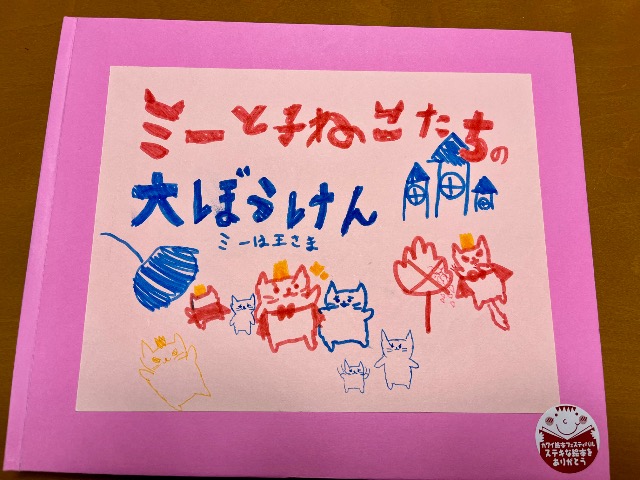 ミーと子ねこたちの
大ぼうけん
ミーは王さま
カワイ絵本フェスティバル
ステキな絵本を
ありがとう